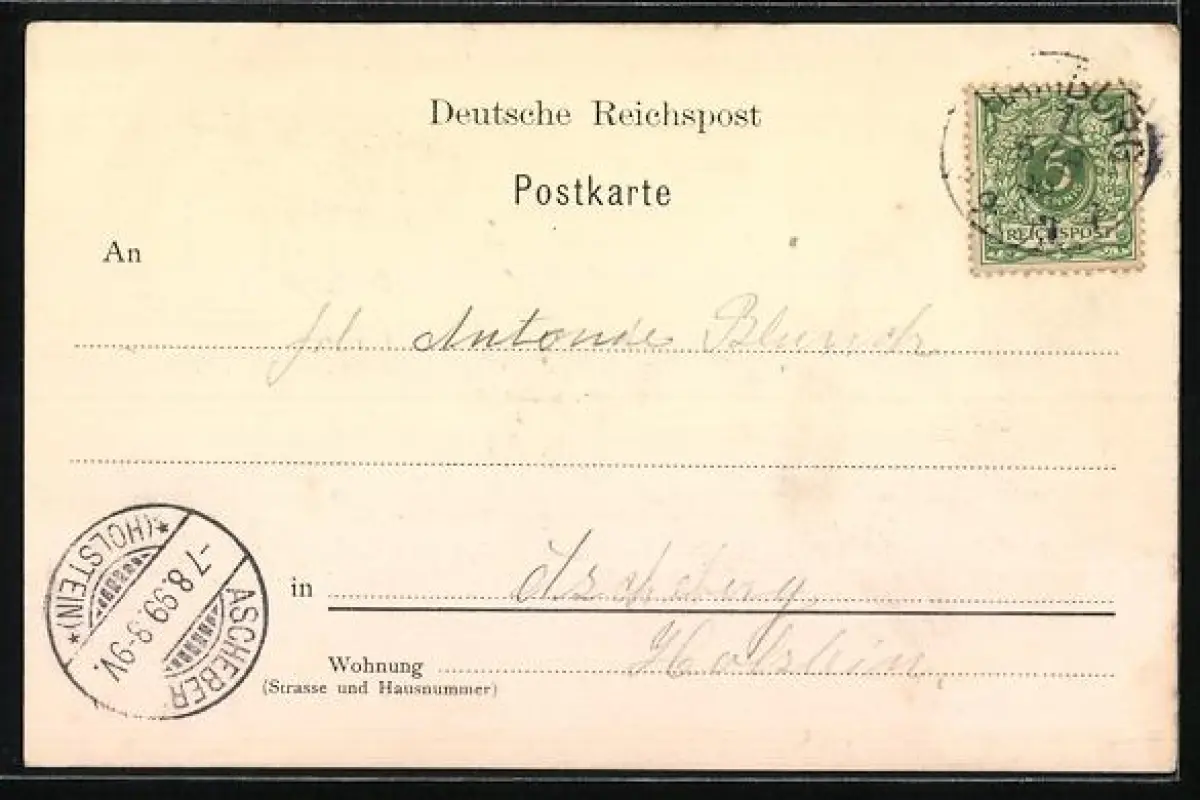 Deutsche Reichspost
Postkarte
HAMBURG
5
PFENNIG
REICHSPOST
An
Antonie Blunck
in
Ascheberg
Wohnung Holstein.
(Strasse und Hausnummer)
ASCHEBERG
*(HOLSTEIN)*
-7.8.99.8-9V.